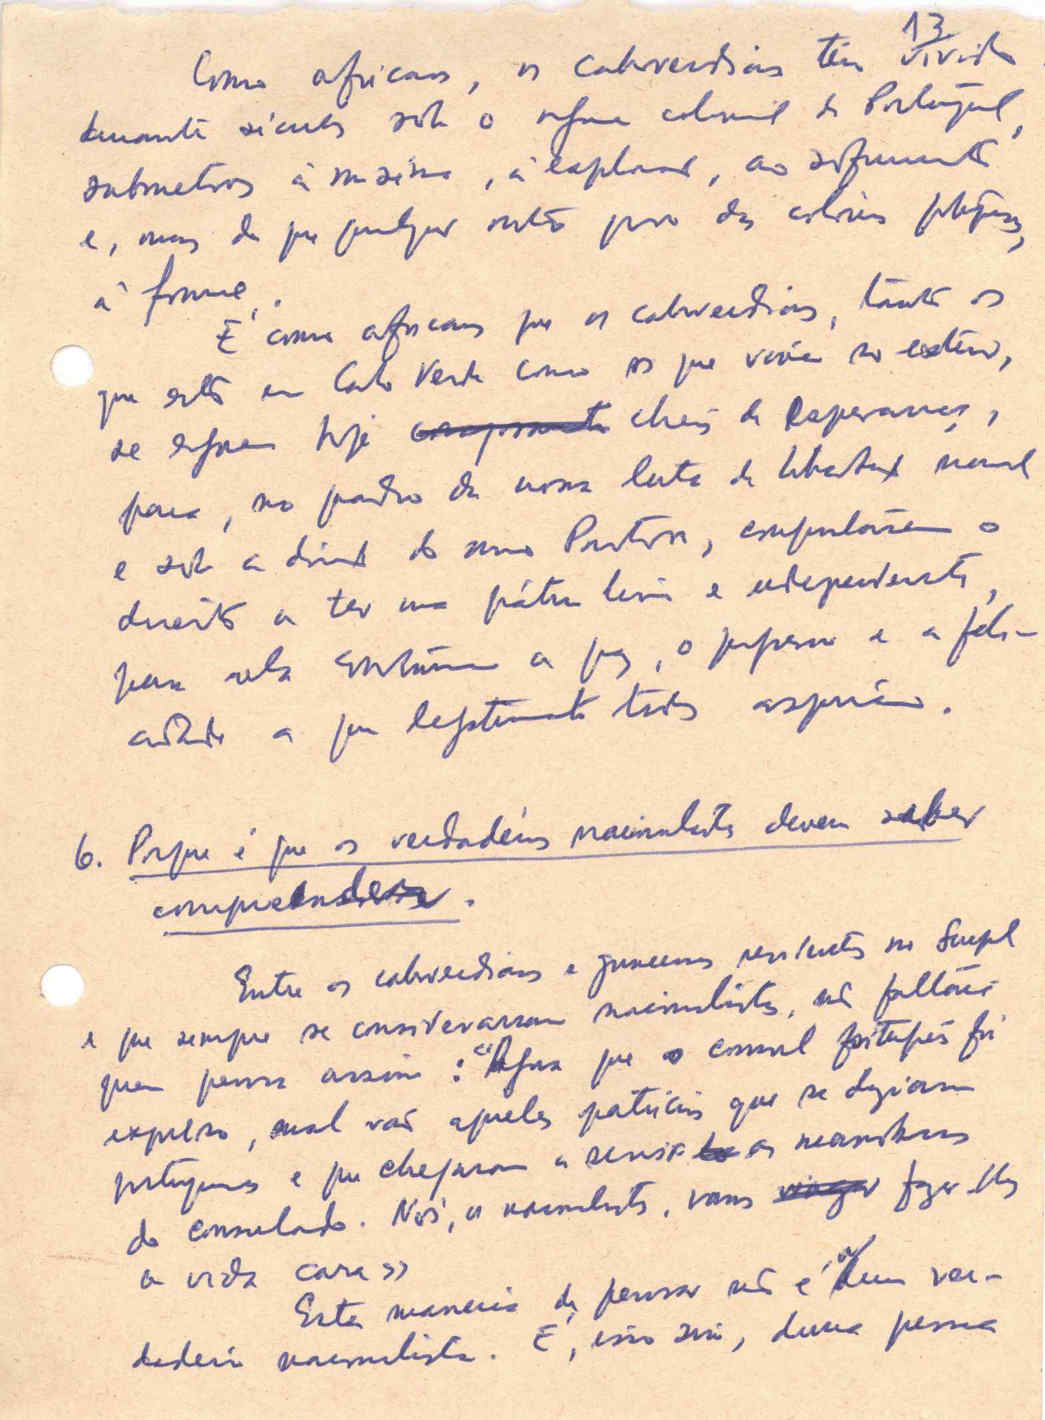 13
Como africanos, os caboverdianos têm vivido
durante séculos sob o regime colonial de Portugal,
submetidos à miséria, à exploração, ao sofrimento
e, mais do que qualquer outro povo das colónias portuguesas,
à fome.
É como africanos que os caboverdianos, tanto os
que estão em Cabo Verde como os que vivem no exterior,
se erguem hoje cheios de esperanças,
para, no quadro da nossa luta de libertação nacional
e sob a direcção do nosso Partido, conquistarem o
direito a ter uma pátria livre e independente,
para nela construirem a paz, o progresso e a feli-
cidade a que legitimamente todos aspiramos.
6. Porque é que os verdadeiros nacionalistas devem saber
compreender.
Entre os caboverdianos e guineenses residentes no Senegal
e que sempre se consideraram nacionalistas, não faltará
quem pensa assim: "Agora que o consul português foi
expulso, mal vão aqueles patrícios que se diziam
portugueses e que chegaram a servir as manobras
do consulado. Nós, os nacionalistas, vamos fazer-lhes
a vida cara»
Esta maneira de pensar não é a dum ver-
dadeiro nacionalista. É, isso sim, duma pessoa